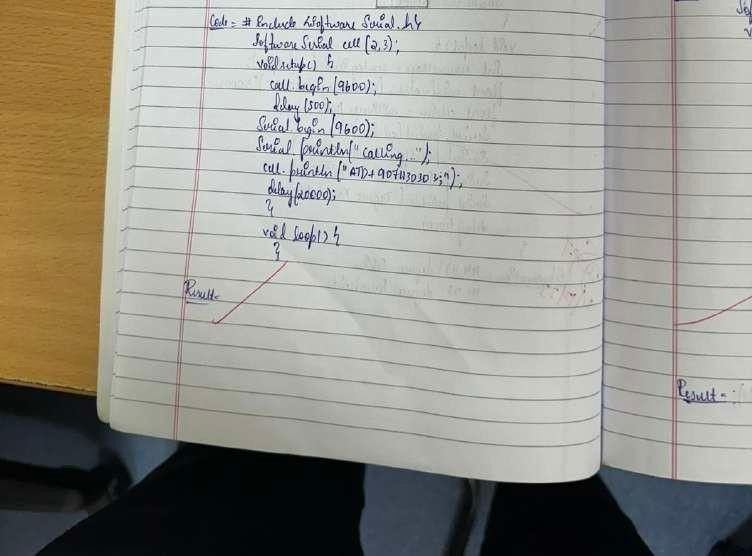 Code:- # Include <Software Serial.h>
Software Serial cell (2,3);
void setup() {
cell.begin (9600);
delay (500);
Serial.begin (9600);
Serial.println("calling...");
cell.println ("ATD+
delay(20000);
}
void loop() {
}
Result:-
Result:-